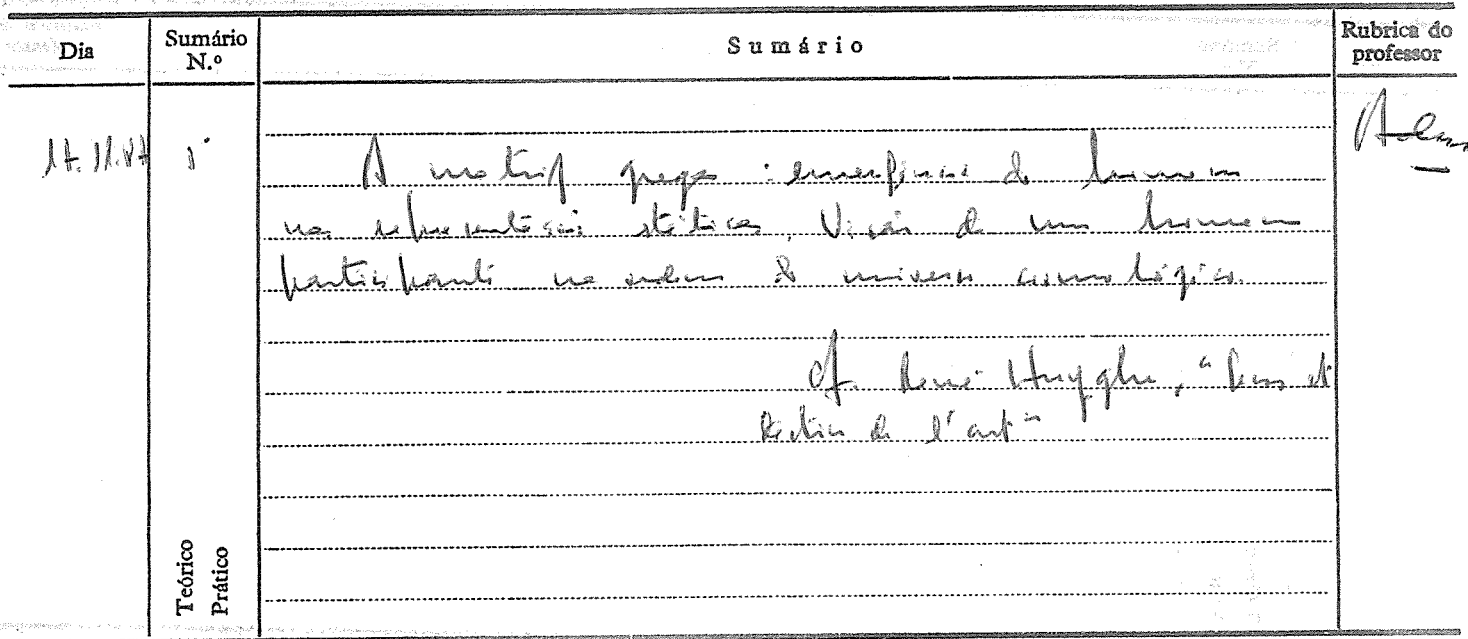 Dia
Sumário N.º
Sumário
Rubrica do professor
A matriz grega: emergência do homem
nas representações estéticas. Visão de um homem
participante na ordem do universo cosmológico.
Cf. René Huyghe, "Sens et
destin de l'art"
Teórico
Prático